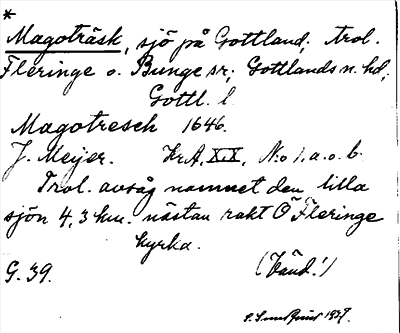 *
Magoträsk, sjö på Gottland; trol.
Fleringe o. Bunge sr; Gottlands n. hd;
Gottl. l
Magotresch 1646.
J. Meijer. KrA, XIX, No 1, a. o. b.
Trol. avsåg namnet den lilla
sjön 4,3 km. nästan rakt Ö Fleringe
kyrka.
G. 39. (Vänd!)
1937.